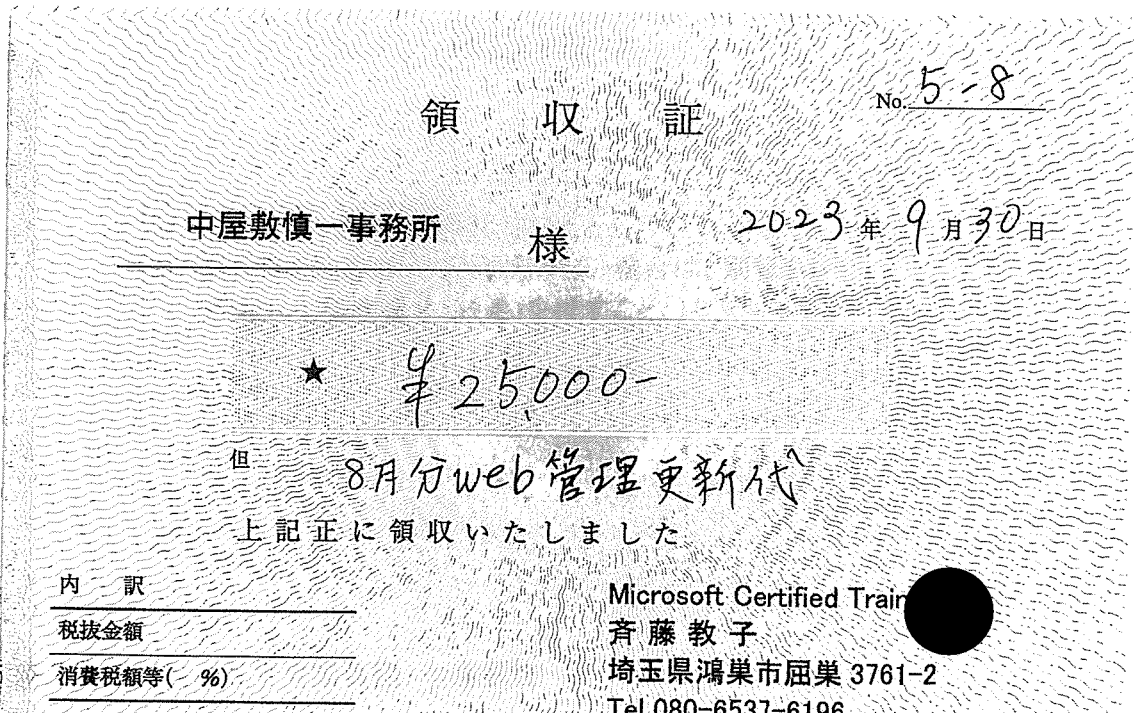 No. 5-8
領収証
中屋敷慎一事務所 様
2023年9月30日
★ ¥25,000-
但 8月分web管理更新代
上記正に領収いたしました
内訳
税抜金額
消費税額等( %)
Microsoft Certified Train
斉藤教子
埼玉県鴻巣市屈巣 3761-2
Tel 080-6537-6196